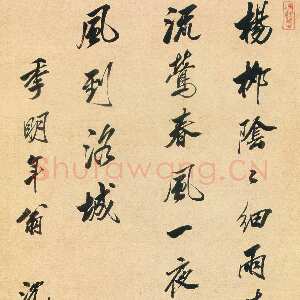 楊柳陰〻細雨
流鶯春風一夜
風到洛城
季明年翁
Shufawang.CN